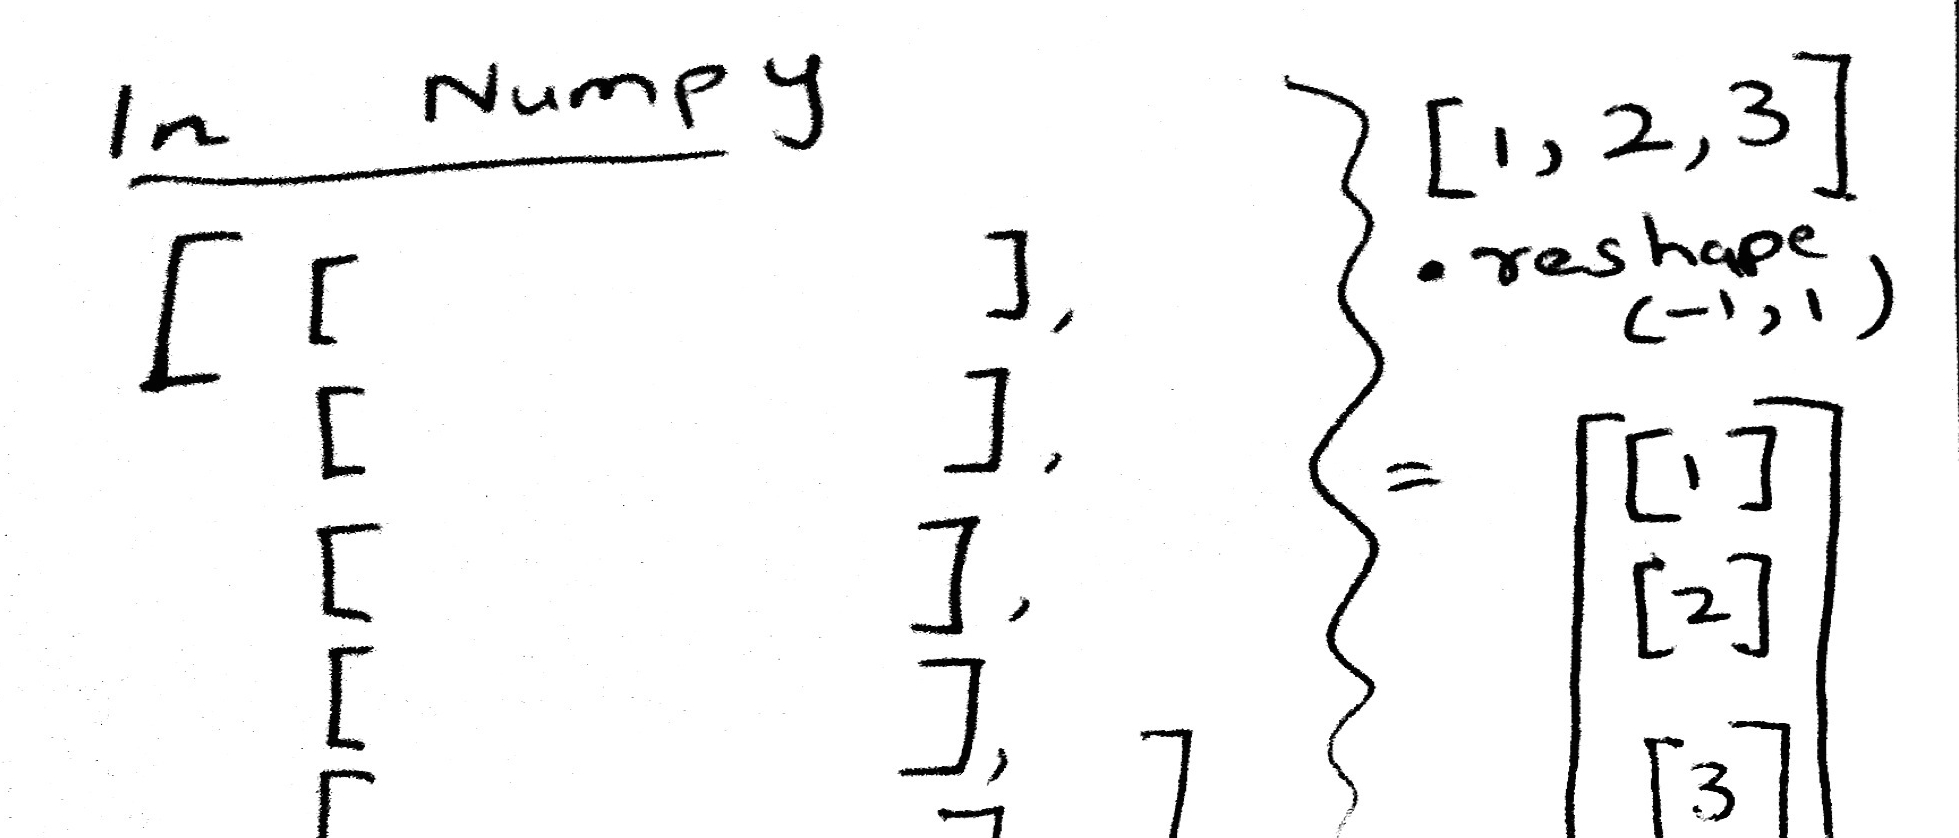 In Numpy
[ [ ],
[ ],
[ ],
[ ],
[ ] ]
[1, 2, 3]
.reshape
(-1, 1)
= [ [1]
[2]
[3] ]